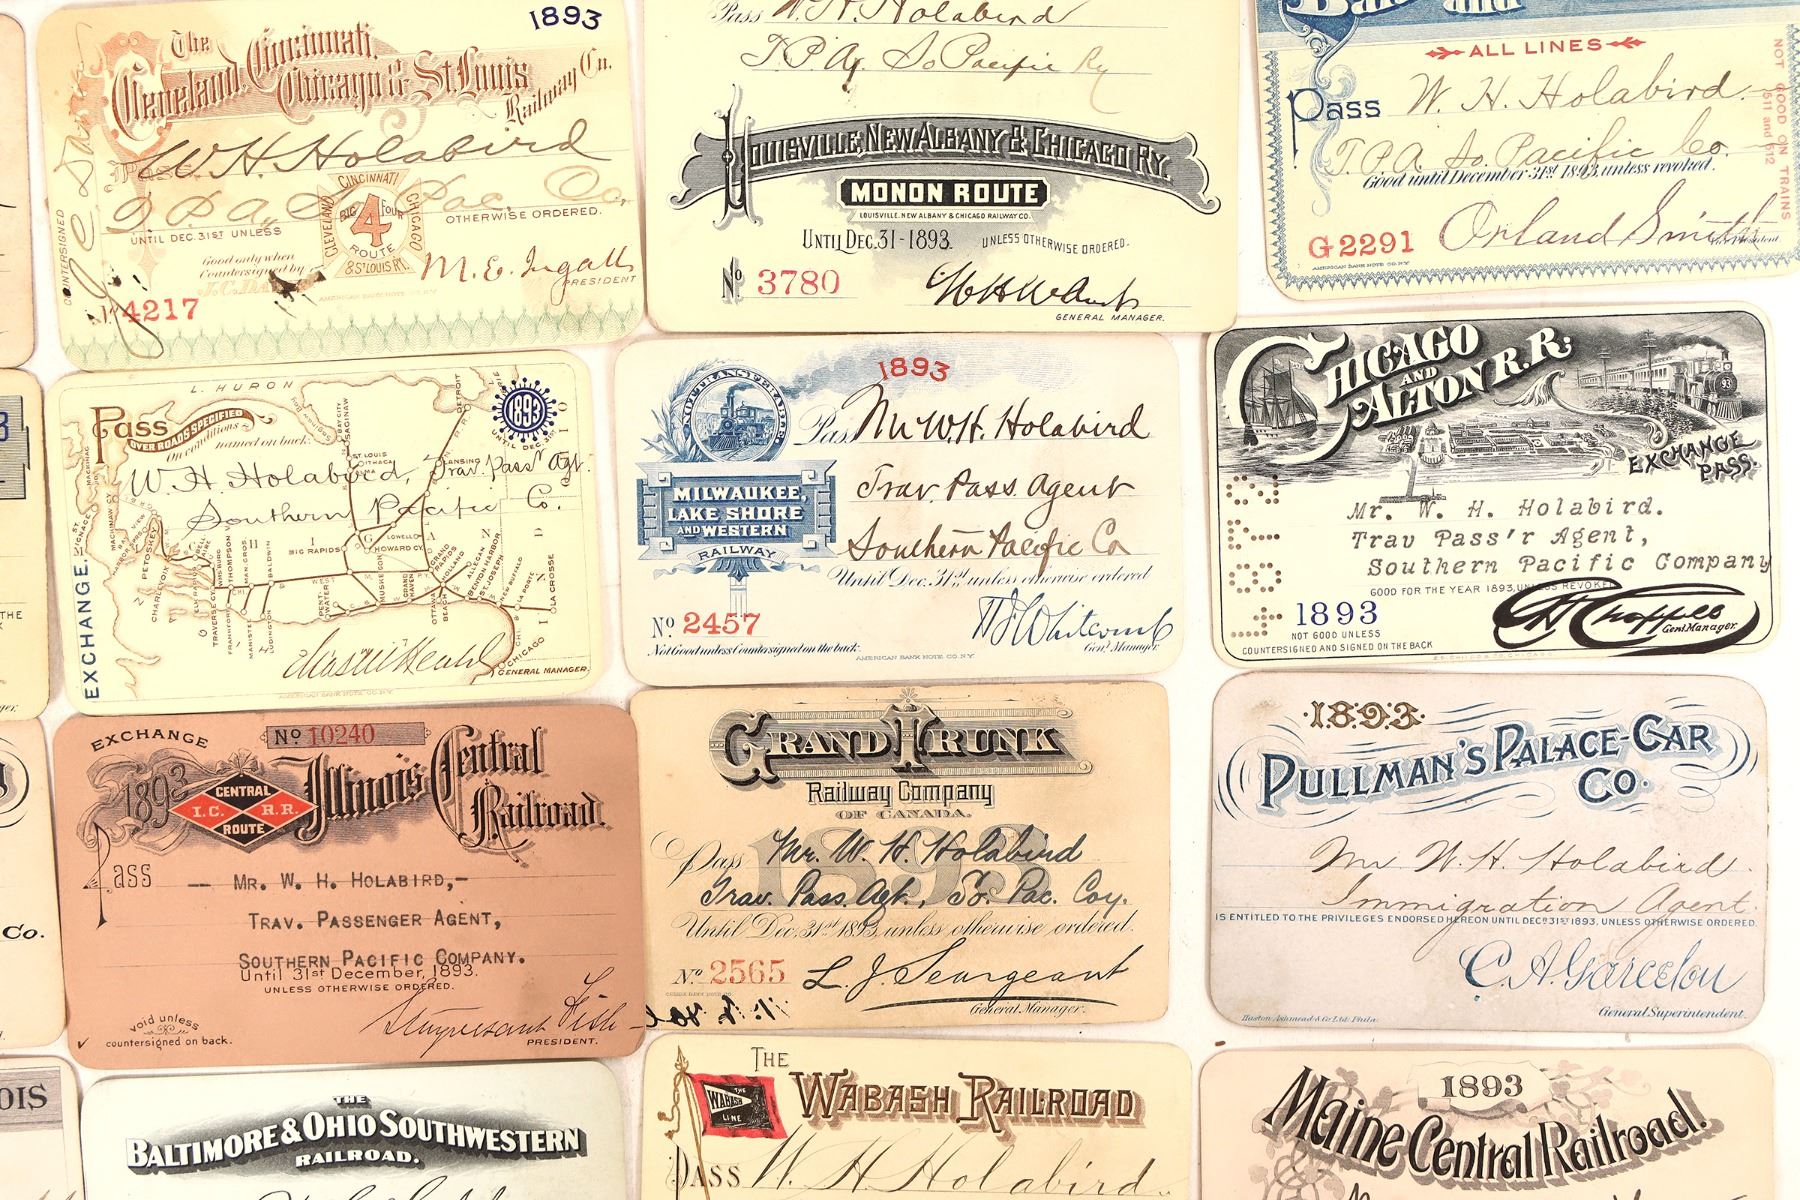 1893
The
Cleveland, Cincinnati,
Chicago & St. Louis
Railway Co.
W. H. Holabird
T. P. A. So Pac. Co.
CINCINNATI
BIG 4 FOUR
ROUTE
CLEVELAND
CHICAGO
& ST. LOUIS RY.
OTHERWISE ORDERED.
UNTIL DEC. 31ST UNLESS
Good only when
Countersigned by
COUNTERSIGNED
M. E. Ingalls
PRESIDENT
No 4217
AMERICAN BANK NOTE CO. N.Y.
Pass W. H. Holabird
T. P. A. So Pacific Ry
LOUISVILLE, NEW ALBANY & CHICAGO RY.
MONON ROUTE
LOUISVILLE, NEW ALBANY & CHICAGO RAILWAY CO.
UNTIL DEC. 31 - 1893. UNLESS OTHERWISE ORDERED.
No 3780
GENERAL MANAGER.
and
ALL LINES
Pass W. H. Holabird
T. P. A. So. Pacific Co.
Good until December 31st 1893, unless revoked.
G2291 Orland Smith
AMERICAN BANK NOTE CO. N.Y.
NOT GOOD ON TRAINS
511 and 512
L. HURON
Pass
OVER ROADS SPECIFIED
On conditions named on back:
1893
UNTIL DEC. 31ST
W. H. Holabird, Trav. Passr Agt.
Southern Pacific Co.
EXCHANGE.
MACKINAC
PETOSKEY
CHARLEVOIX
TRAVERSE CY.
FRANKFORT
MANISTEE
LUDINGTON
THOMPSONV.
BALDWIN
BIG RAPIDS
HOWARD CY.
LOWELL
GRAND RAPIDS
HOLLAND
ALLEGAN
BENTON HARBOR
ST. JOSEPH
NEW BUFFALO
MUSKEGON
GRAND HAVEN
OTTAWA BEACH
PENTWATER
ST. LOUIS
ITHACA
ALMA
LANSING
BAY CITY
SAGINAW
DETROIT
LA CROSSE
CHICAGO
GENERAL MANAGER.
AMERICAN BANK NOTE CO. N.Y.
1893
NOT TRANSFERABLE
Pass Mr W. H. Holabird
Trav. Pass. Agent
Southern Pacific Co
MILWAUKEE,
LAKE SHORE
AND WESTERN
RAILWAY
Until Dec. 31st unless otherwise ordered
No 2457
Not Good unless Countersigned on the back.
Genl Manager.
AMERICAN BANK NOTE CO. N.Y.
CHICAGO
AND
ALTON R. R.
93
EXCHANGE
PASS.
Mr. W. H. Holabird.
Trav Pass'r Agent,
Southern Pacific Company
GOOD FOR THE YEAR 1893, UNLESS REVOKED
1893
NOT GOOD UNLESS
COUNTERSIGNED AND SIGNED ON THE BACK
C H Chappell
Genl. Manager.
EXCHANGE
No 10240
1893
CENTRAL
I.C. R.R.
ROUTE
Illinois Central
Railroad.
Pass
— MR. W. H. HOLABIRD,-
TRAV. PASSENGER AGENT,
SOUTHERN PACIFIC COMPANY.
Until 31st December, 1893.
UNLESS OTHERWISE ORDERED.
void unless
countersigned on back.
Stuyvesant Fish
PRESIDENT.
GRAND TRUNK
Railway Company
OF CANADA.
1893
Pass Mr. W. H. Holabird
Trav. Pass. Agt., So. Pac. Coy.
Until Dec. 31st 1893, unless otherwise ordered.
No 2565 L. J. Seargeant
General Manager.
1893
PULLMAN'S PALACE CAR
CO.
Mr W. H. Holabird
Immigration Agent.
IS ENTITLED TO THE PRIVILEGES ENDORSED HEREON UNTIL DECR 31ST 1893, UNLESS OTHERWISE ORDERED.
C. A. Garcelon
General Superintendent.
THE
BALTIMORE & OHIO SOUTHWESTERN
RAILROAD.
THE
WABASH RAILROAD
THE
WABASH
LINE
PASS W. H. Holabird
1893
Maine Central Railroad.
THE
Co.
OIS